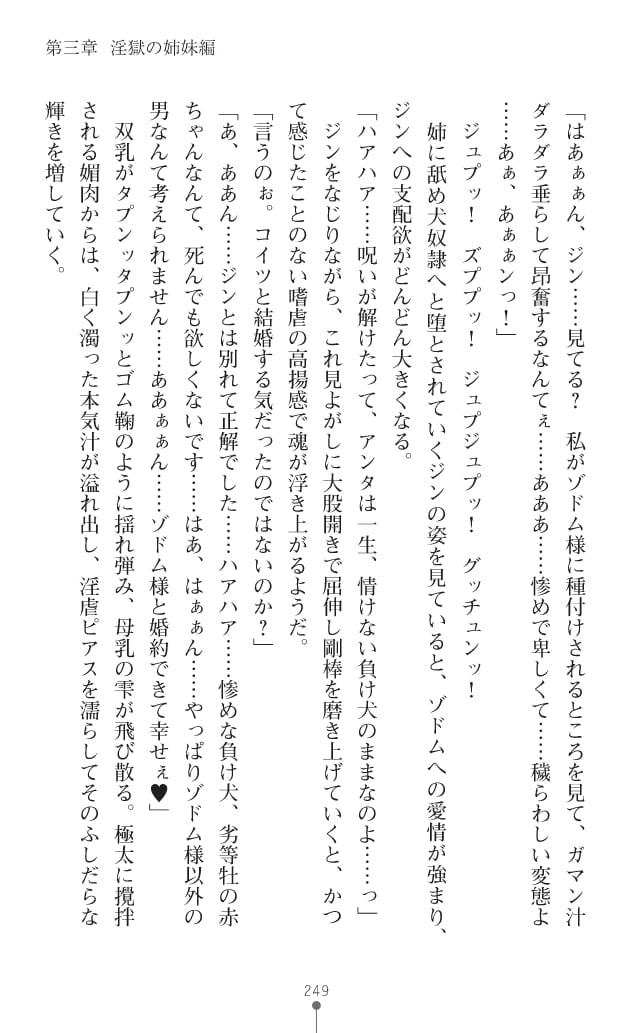 第三章　淫獄の姉妹編
「はあぁぁん、ジン……見てる？　私がゾドム様に種付けされるところを見て、ガマン汁
ダラダラ垂らして昂奮するなんてぇ……あああ……惨めで卑しくて……穢らわしい変態よ
……あぁ、あぁぁンっ！」
ジュプッ！　ズププッ！　ジュプジュプッ！　グッチュンッ！
姉に舐め犬奴隷へと堕とされていくジンの姿を見ていると、ゾドムへの愛情が強まり、
ジンへの支配欲がどんどん大きくなる。
「ハアハア……呪いが解けたって、アンタは一生、情けない負け犬のままなのよ……っ」
ジンをなじりながら、これ見よがしに大股開きで屈伸し剛棒を磨き上げていくと、かつ
て感じたことのない嗜虐の高揚感で魂が浮き上がるようだ。
「言うのぉ。コイツと結婚する気だったのではないのか？」
「あ、ああん……ジンとは別れて正解でした……ハアハア……惨めな負け犬、劣等牡の赤
ちゃんなんて、死んでも欲しくないです……はあ、はぁぁん……やっぱりゾドム様以外の
男なんて考えられません……ああぁぁん……ゾドム様と婚約できて幸せぇ♥」
双乳がタプンッタプンッとゴム鞠のように揺れ弾み、母乳の雫が飛び散る。極太に攪拌
される媚肉からは、白く濁った本気汁が溢れ出し、淫虐ピアスを濡らしてそのふしだらな
輝きを増していく。
249